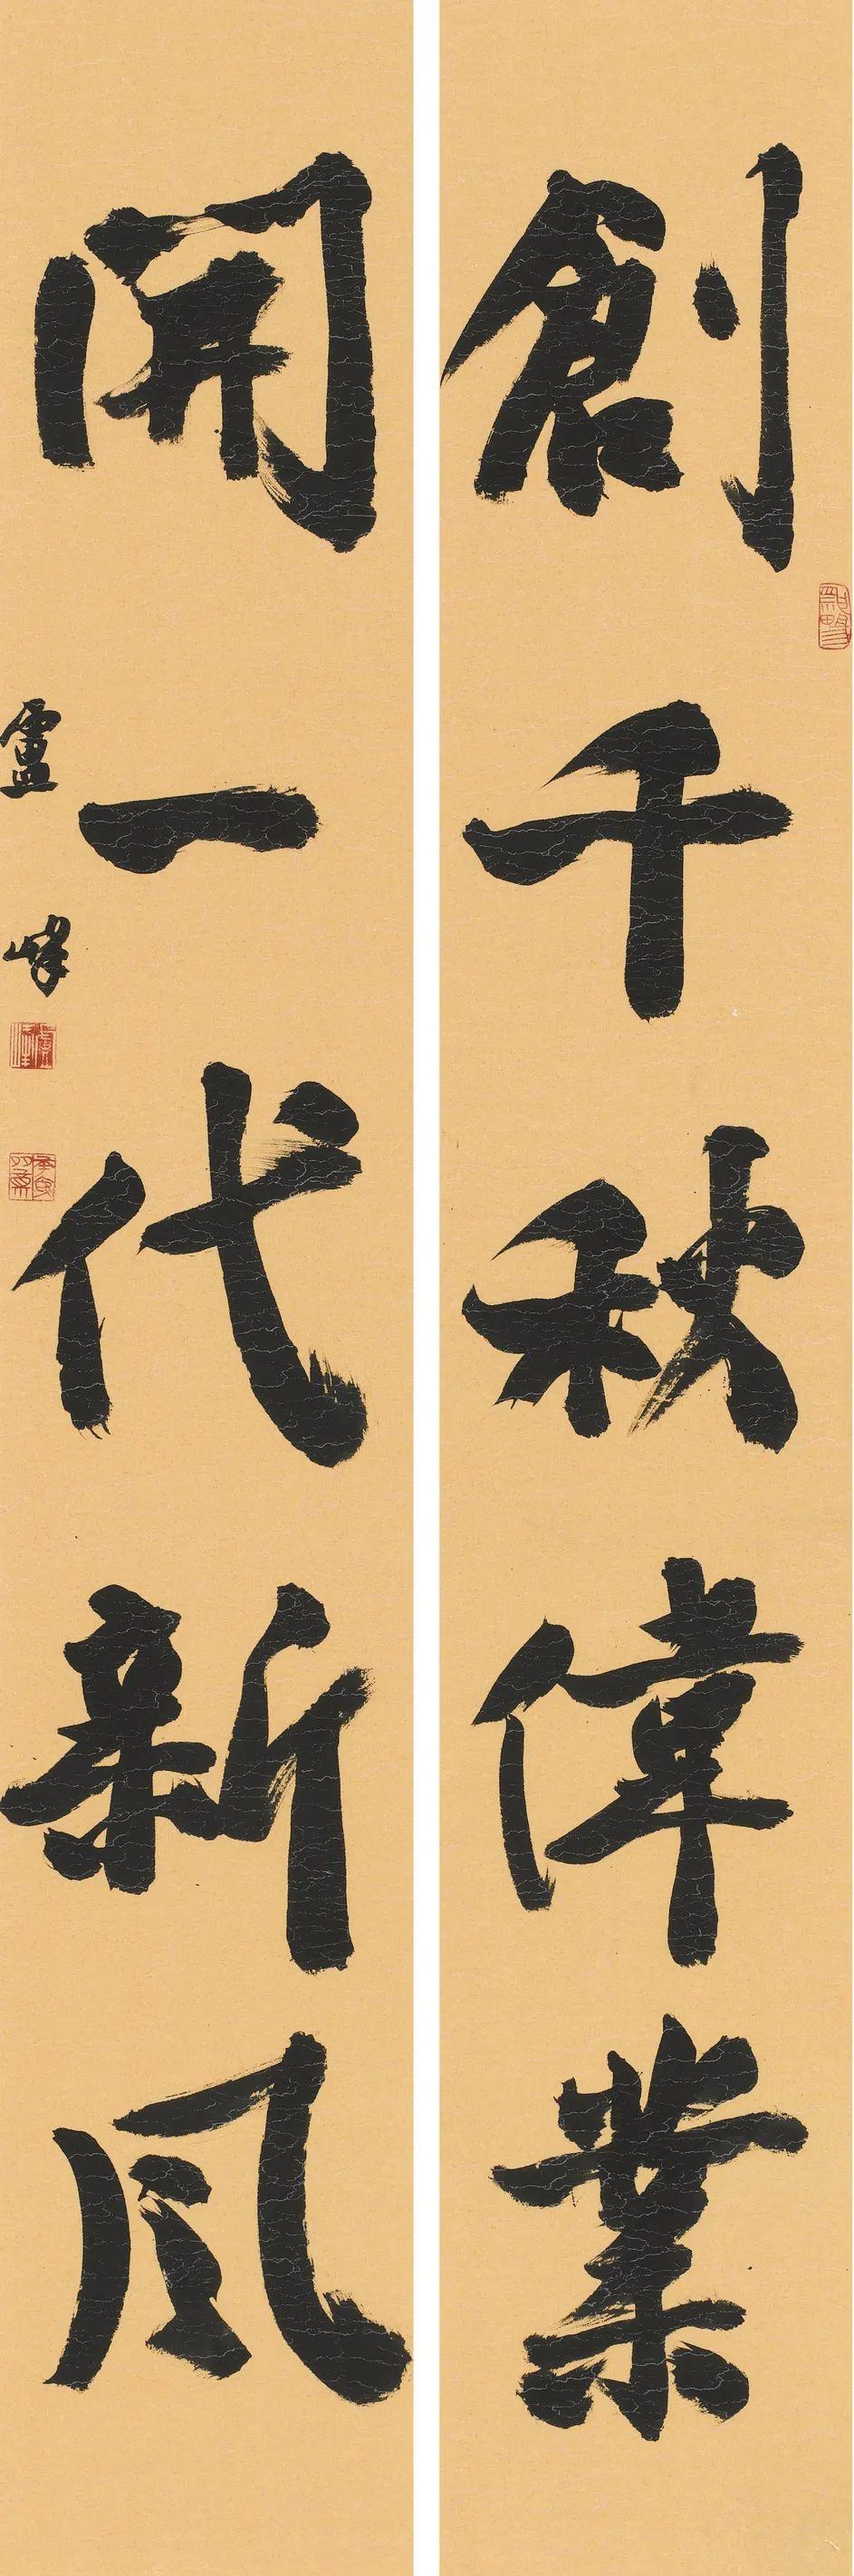 創千秋偉業
開一代新风
盧峰